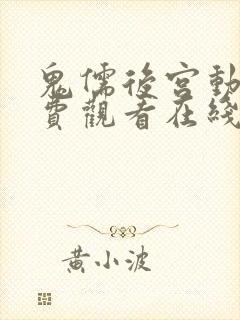 鬼儒後宮動
費觀看在綫
黃小波